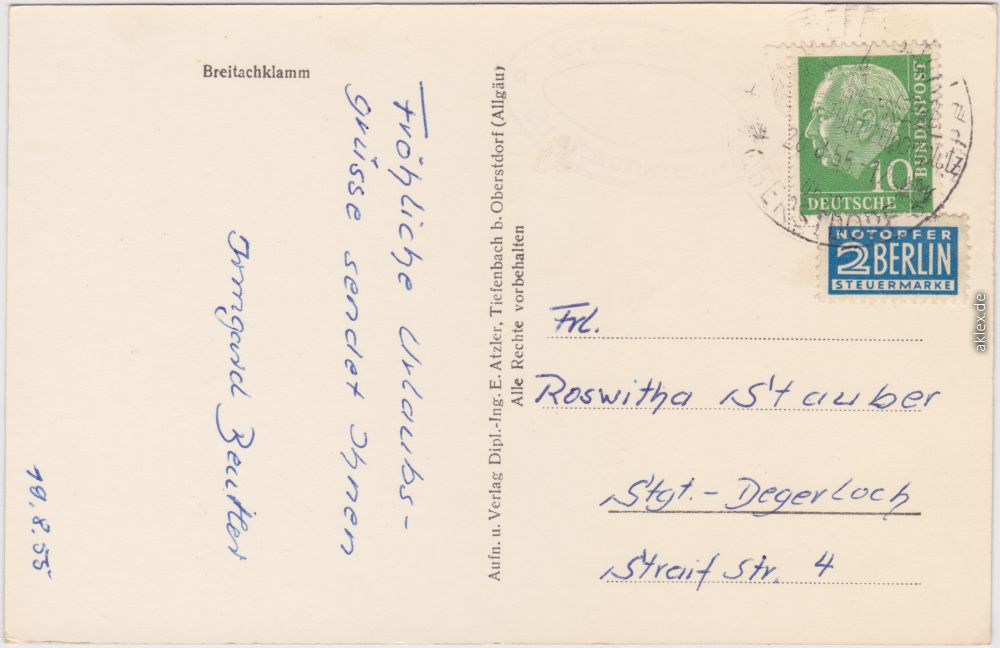 Breitachklamm
Fröhliche Urlaubs-
grüsse sendet Ihnen
Irmgard Beutter
19.8.55
Aufn. u. Verlag Dipl.-Ing. E. Atzler, Tiefenbach b. Oberstdorf (Allgäu)
Alle Rechte vorbehalten
10
DEUTSCHE
BUNDESPOST
OBERSTDORF
NOTOPFER
2 BERLIN
STEUERMARKE
Frl.
Roswitha Stauber
Stgt.-Degerloch
Straifstr. 4
aklex.de